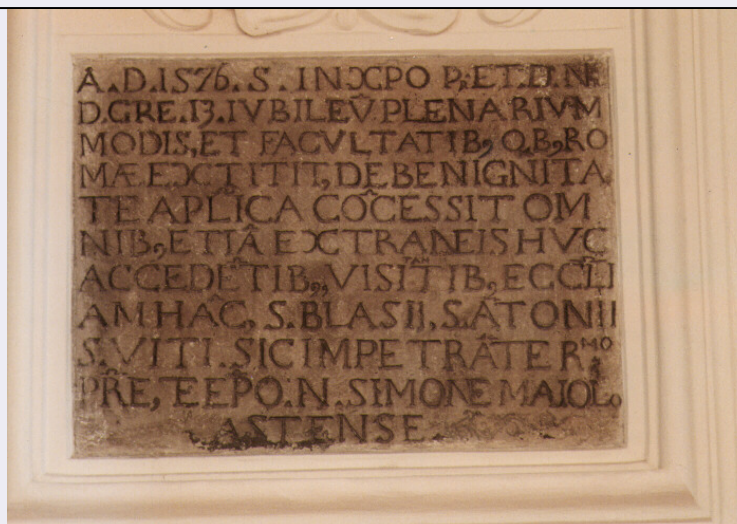 A.D.1576. S. IN XPO P, ET D.N.
D.GRE.13.IVBILEV̂ PLENARIVM
MODIS, ET FACVLTATIB, QB, RO
MÆ EXCTITIT, DE BENIGNITA
TE APLICA COC̑ESSIT OM
NIB, ETIÂ EXCTRANEIS HVC
ACCEDET̂IB, VISITᵀᴬᴺTIB, ECCLI
AM HAC, S.BLASII, S.ATONII
S.VITI.SIC IMPETRÂTE Rᴹᴼ
PRE, E EPO.N.SIMONE MAIOL.
ASTENSE